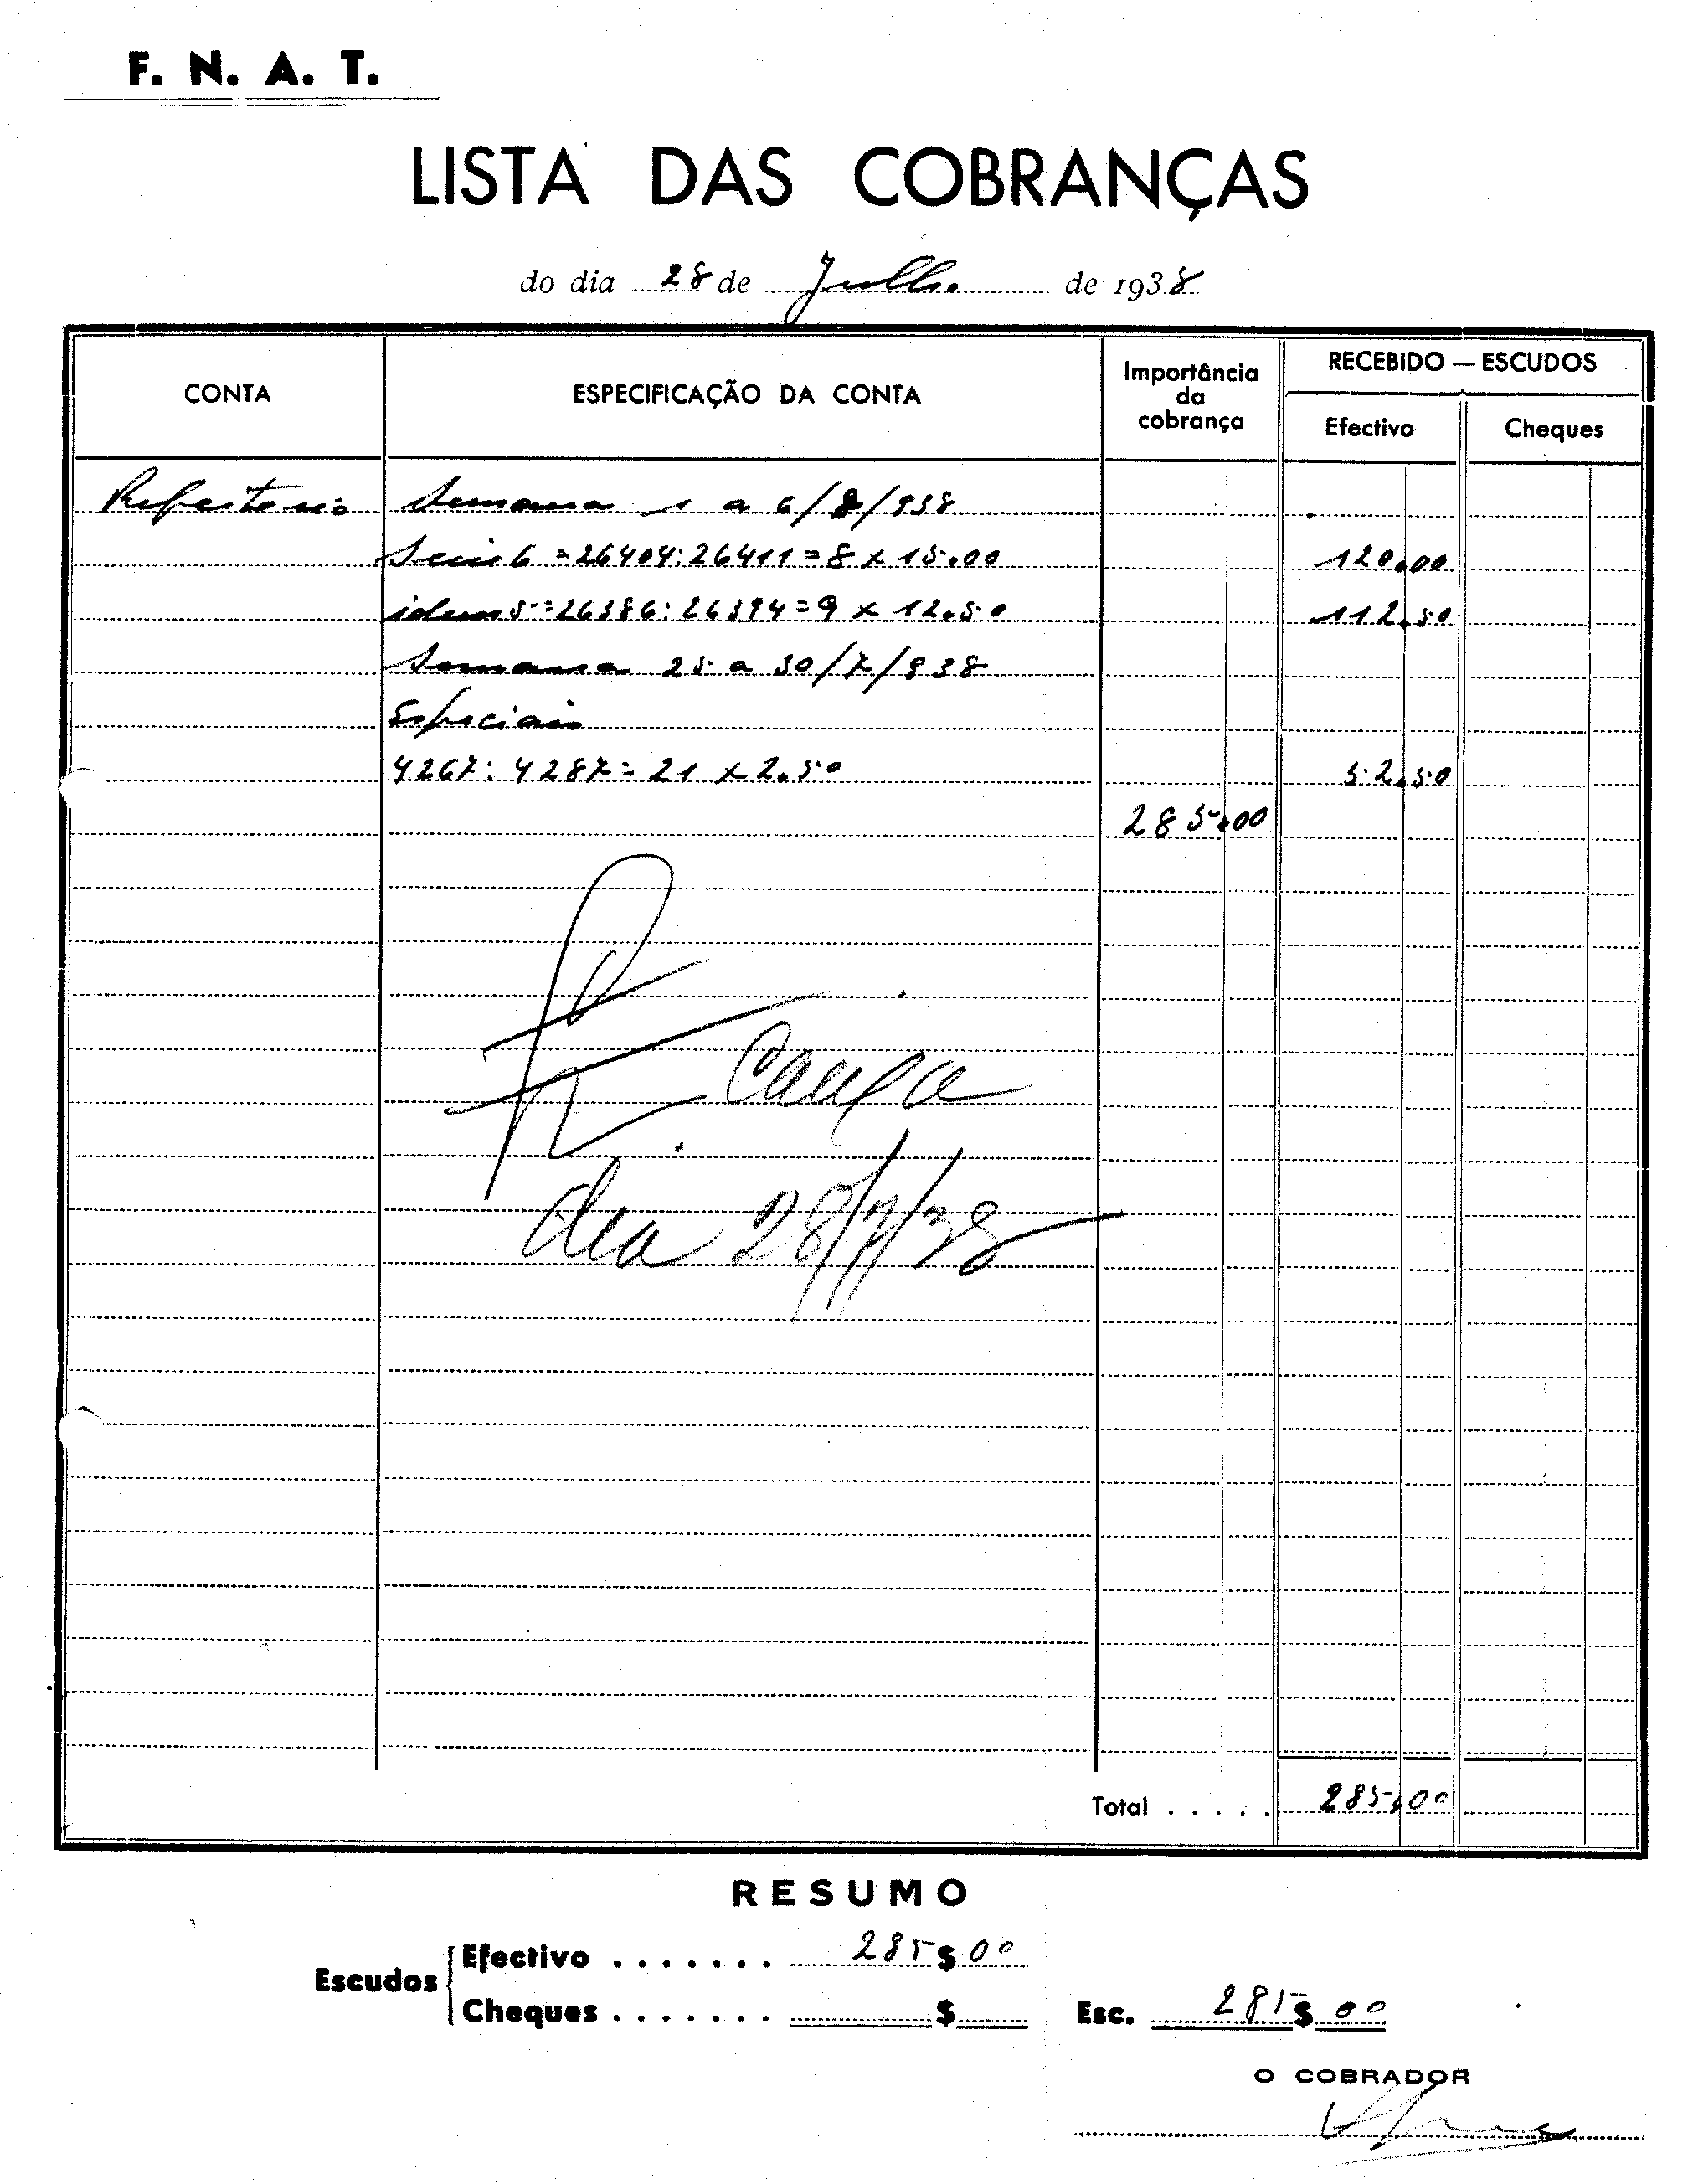 F. N. A. T.
LISTA DAS COBRANÇAS
do dia 28 de Julho de 1938
CONTA ESPECIFICAÇÃO DA CONTA Importância da cobrança RECEBIDO — ESCUDOS
Efectivo Cheques
Refeitorio Semana 1 a 6/8/938
Serie 6 = 26404:26411 = 8 x 15.00 120.00
idem 5 = 26386:26394 = 9 x 12.50 112.50
Semana 25 a 30/7/938
Especiais
4267:4287 = 21 x 2.50 52.50
285.00
Caixa
dia 28/7/38
Total . . . . . 285.00
RESUMO
Escudos Efectivo . . . . . . . 285$00
Cheques . . . . . . . $ Esc. 285$00
O COBRADOR